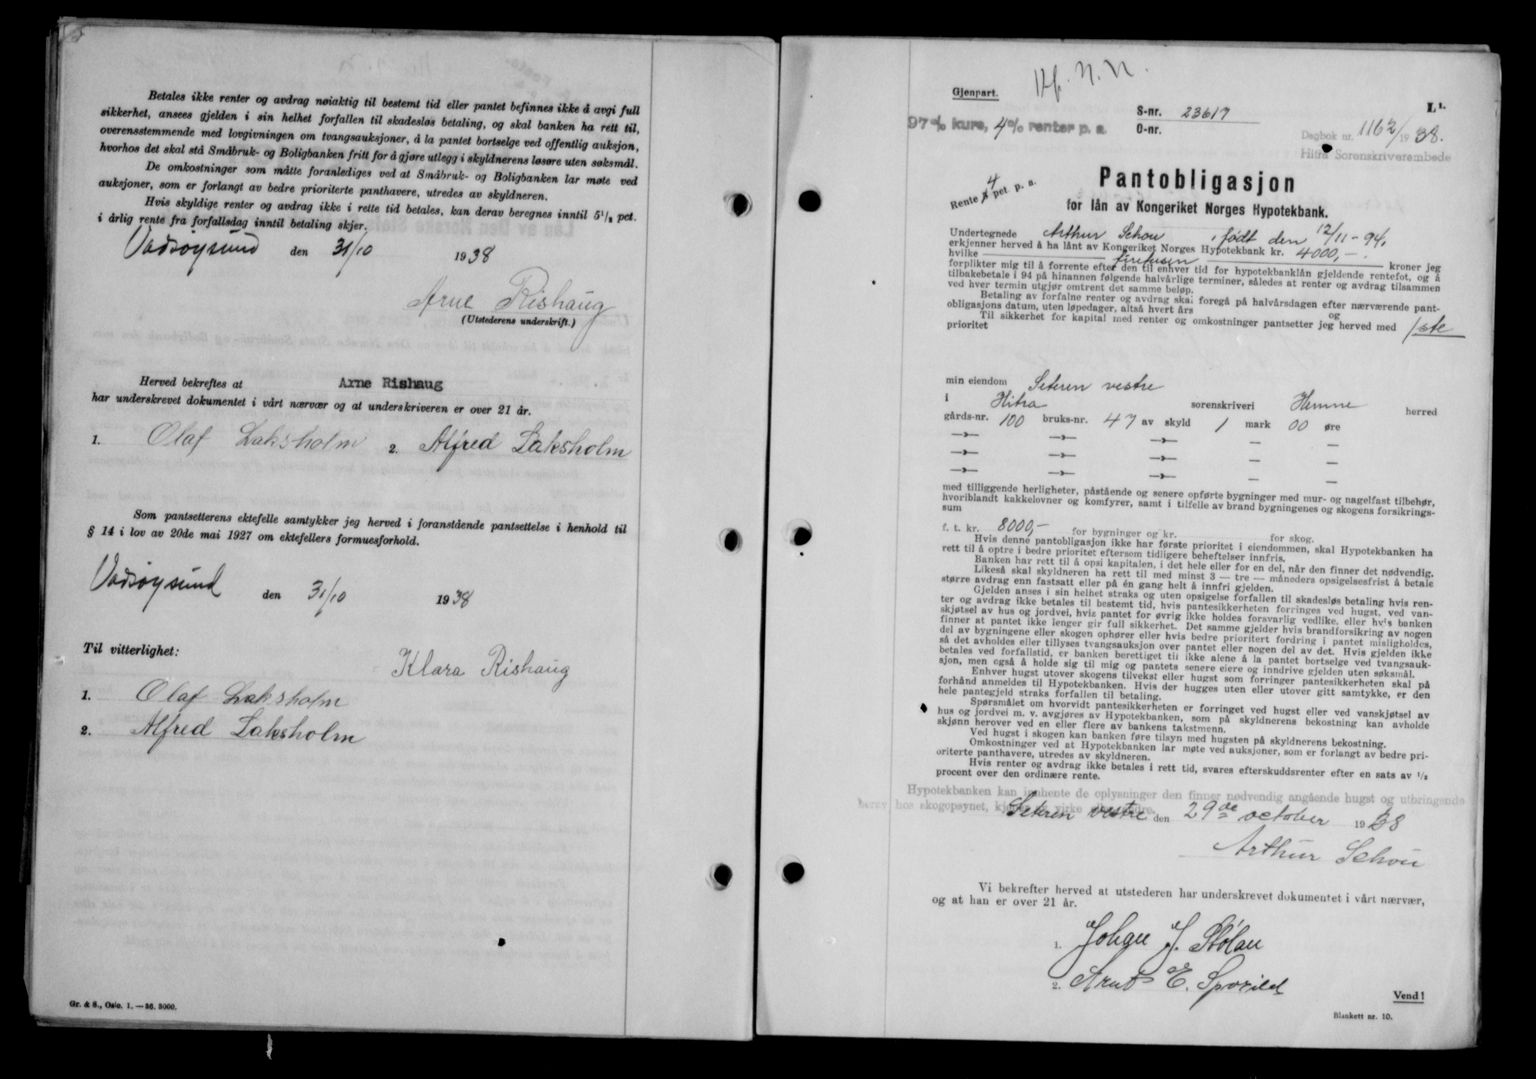 Betales ikke renter og avdrag nøiaktig til bestemt tid eller pantet befinnes ikke å avgi full
sikkerhet, ansees gjelden i sin helhet forfallen til skadesløs betaling, og skal banken ha rett til,
overensstemmende med lovgivningen om tvangsauksjoner, å la pantet bortselge ved offentlig auksjon,
hvorhos det skal stå Småbruk- og Boligbanken fritt for å gjøre utlegg i skyldnerens løsøre uten søksmål.
De omkostninger som måtte foranlediges ved at Småbruk- og Boligbanken lar møte ved
auksjoner, som er forlangt av bedre prioriterte panthavere, utredes av skyldneren.
Hvis skyldige renter og avdrag ikke i rette tid betales, kan derav beregnes inntil 5 1/2 pct.
i årlig rente fra forfallsdag inntil betaling skjer.
Vadsøysund den 31/10 1938
Arne Rishaug
(Utstederens underskrift.)
Herved bekreftes at Arne Rishaug
har underskrevet dokumentet i vårt nærvær og at underskriveren er over 21 år.
1. Olaf Laksholm 2. Alfred Laksholm
Som pantsetterens ektefelle samtykker jeg herved i foranstående pantsettelse i henhold til
§ 14 i lov av 20de mai 1927 om ektefellers formuesforhold.
Vadsøysund den 31/10 1938
Til vitterlighet:
Klara Rishaug
1. Olaf Laksholm
2. Alfred Laksholm
Gr. & S., Oslo. 1. — 36. 3000.
Gjenpart.
L 1.
S-nr. 23617
97 % kurs, 4 % renter p. a.
O-nr.
Dagbok nr. 1162/1938.
Hitra Sorenskriverembede
Pantobligasjon
Rente 4 pct. p. a.
for lån av Kongeriket Norges Hypotekbank.
Undertegnede Arthur Schou, født den 12/11-94,
erkjenner herved å ha lånt av Kongeriket Norges Hypotekbank kr. 4000,-
hvilke firetusen kroner jeg
forplikter mig til å forrente efter den til enhver tid for hypotekbanklån gjeldende rentefot, og å
tilbakebetale i 94 på hinannen følgende halvårlige terminer, således at renter og avdrag tilsammen
ved hver termin utgjør omtrent det samme beløp.
Betaling av forfalne renter og avdrag skal foregå på halvårsdagen efter nærværende pant-
obligasjons datum, uten løpedager, altså hvert års og
Til sikkerhet for kapital med renter og omkostninger pantsetter jeg herved med 1ste
prioritet
min eiendom Seteren vestre
i Hitra sorenskriveri Hemne herred
gårds-nr. 100 bruks-nr. 47 av skyld 1 mark 00 øre
med tilliggende herligheter, påstående og senere opførte bygninger med mur- og nagelfast tilbehør,
hvoriblandt kakkelovner og komfyrer, samt i tilfelle av brand bygningenes og skogens forsikrings-
sum
f. t. kr. 8000,- for bygninger og kr. for skog.
Hvis denne pantobligasjon ikke har første prioritet i eiendommen, skal Hypotekbanken ha
rett til å optre i bedre prioritet eftersom tidligere beheftelser innfris.
Banken har rett til å opsi kapitalen, i det hele eller for en del, når den finner det nødvendig.
Likeså skal skyldneren ha rett til med minst 3 — tre — måneders opsigelsesfrist å betale
større avdrag enn fastsatt eller på én gang helt å innfri gjelden.
Gjelden anses i sin helhet straks og uten opsigelse forfallen til skadesløs betaling hvis ren-
ter og avdrag ikke betales til bestemt tid, hvis pantesikkerheten forringes ved hugst, ved van-
skjøtsel av hus og jordvei, hvis pantet for øvrig ikke holdes forsvarlig vedlike, eller hvis banken
finner at pantet ikke lenger gir full sikkerhet. Det samme gjelder hvis brandforsikring av nogen
del av bygningene eller skogen ophører eller hvis bedre prioritert fordring i pantet misligholdes,
så det avholdes eller tillyses tvangsauksjon over pantet eller nogen del av det. Hvis gjelden ikke
betales ved forfallstid, er banken berettiget til ikke alene å la pantet bortselge ved tvangsauk-
sjon, men også å holde sig til mig og pantets senere eiere og inndrive gjelden uten søksmål.
Enhver hugst utover skogens tilvekst eller hugst som forringer pantesikkerheten skal på
forhånd anmeldes til Hypotekbanken. Hvis der hugges uten eller utover gitt samtykke, er den
hele pantegjeld straks forfallen til betaling.
Spørsmålet om hvorvidt pantesikkerheten er forringet ved hugst eller ved vanskjøtsel av
hus og jordvei m. v. avgjøres av Hypotekbanken, som på skyldnerens bekostning kan avholde
skjønn herover ved en eller flere av bankens takstmenn.
Ved hugst i skogen kan banken føre tilsyn med hugsten på skyldnerens bekostning.
Omkostninger ved at Hypotekbanken lar møte ved auksjoner, som er forlangt av bedre pri-
oriterte panthavere, utredes av skyldneren.
Hvis renter og avdrag ikke betales i rett tid, svares efterskuddsrenter efter en sats av 1/2
procent over den ordinære rente.
Hypotekbanken kan innhente de oplysninger den finner nødvendig angående hugst og utbringende
herav hos skogopsynet,
Seteren vestre den 29de october 1938
Arthur Schou
Vi bekrefter herved at utstederen har underskrevet dokumentet i vårt nærvær,
og at han er over 21 år.
1. Johan J. Stølan
2. Arnt E. Sporild
Vend!
Blankett nr. 10.